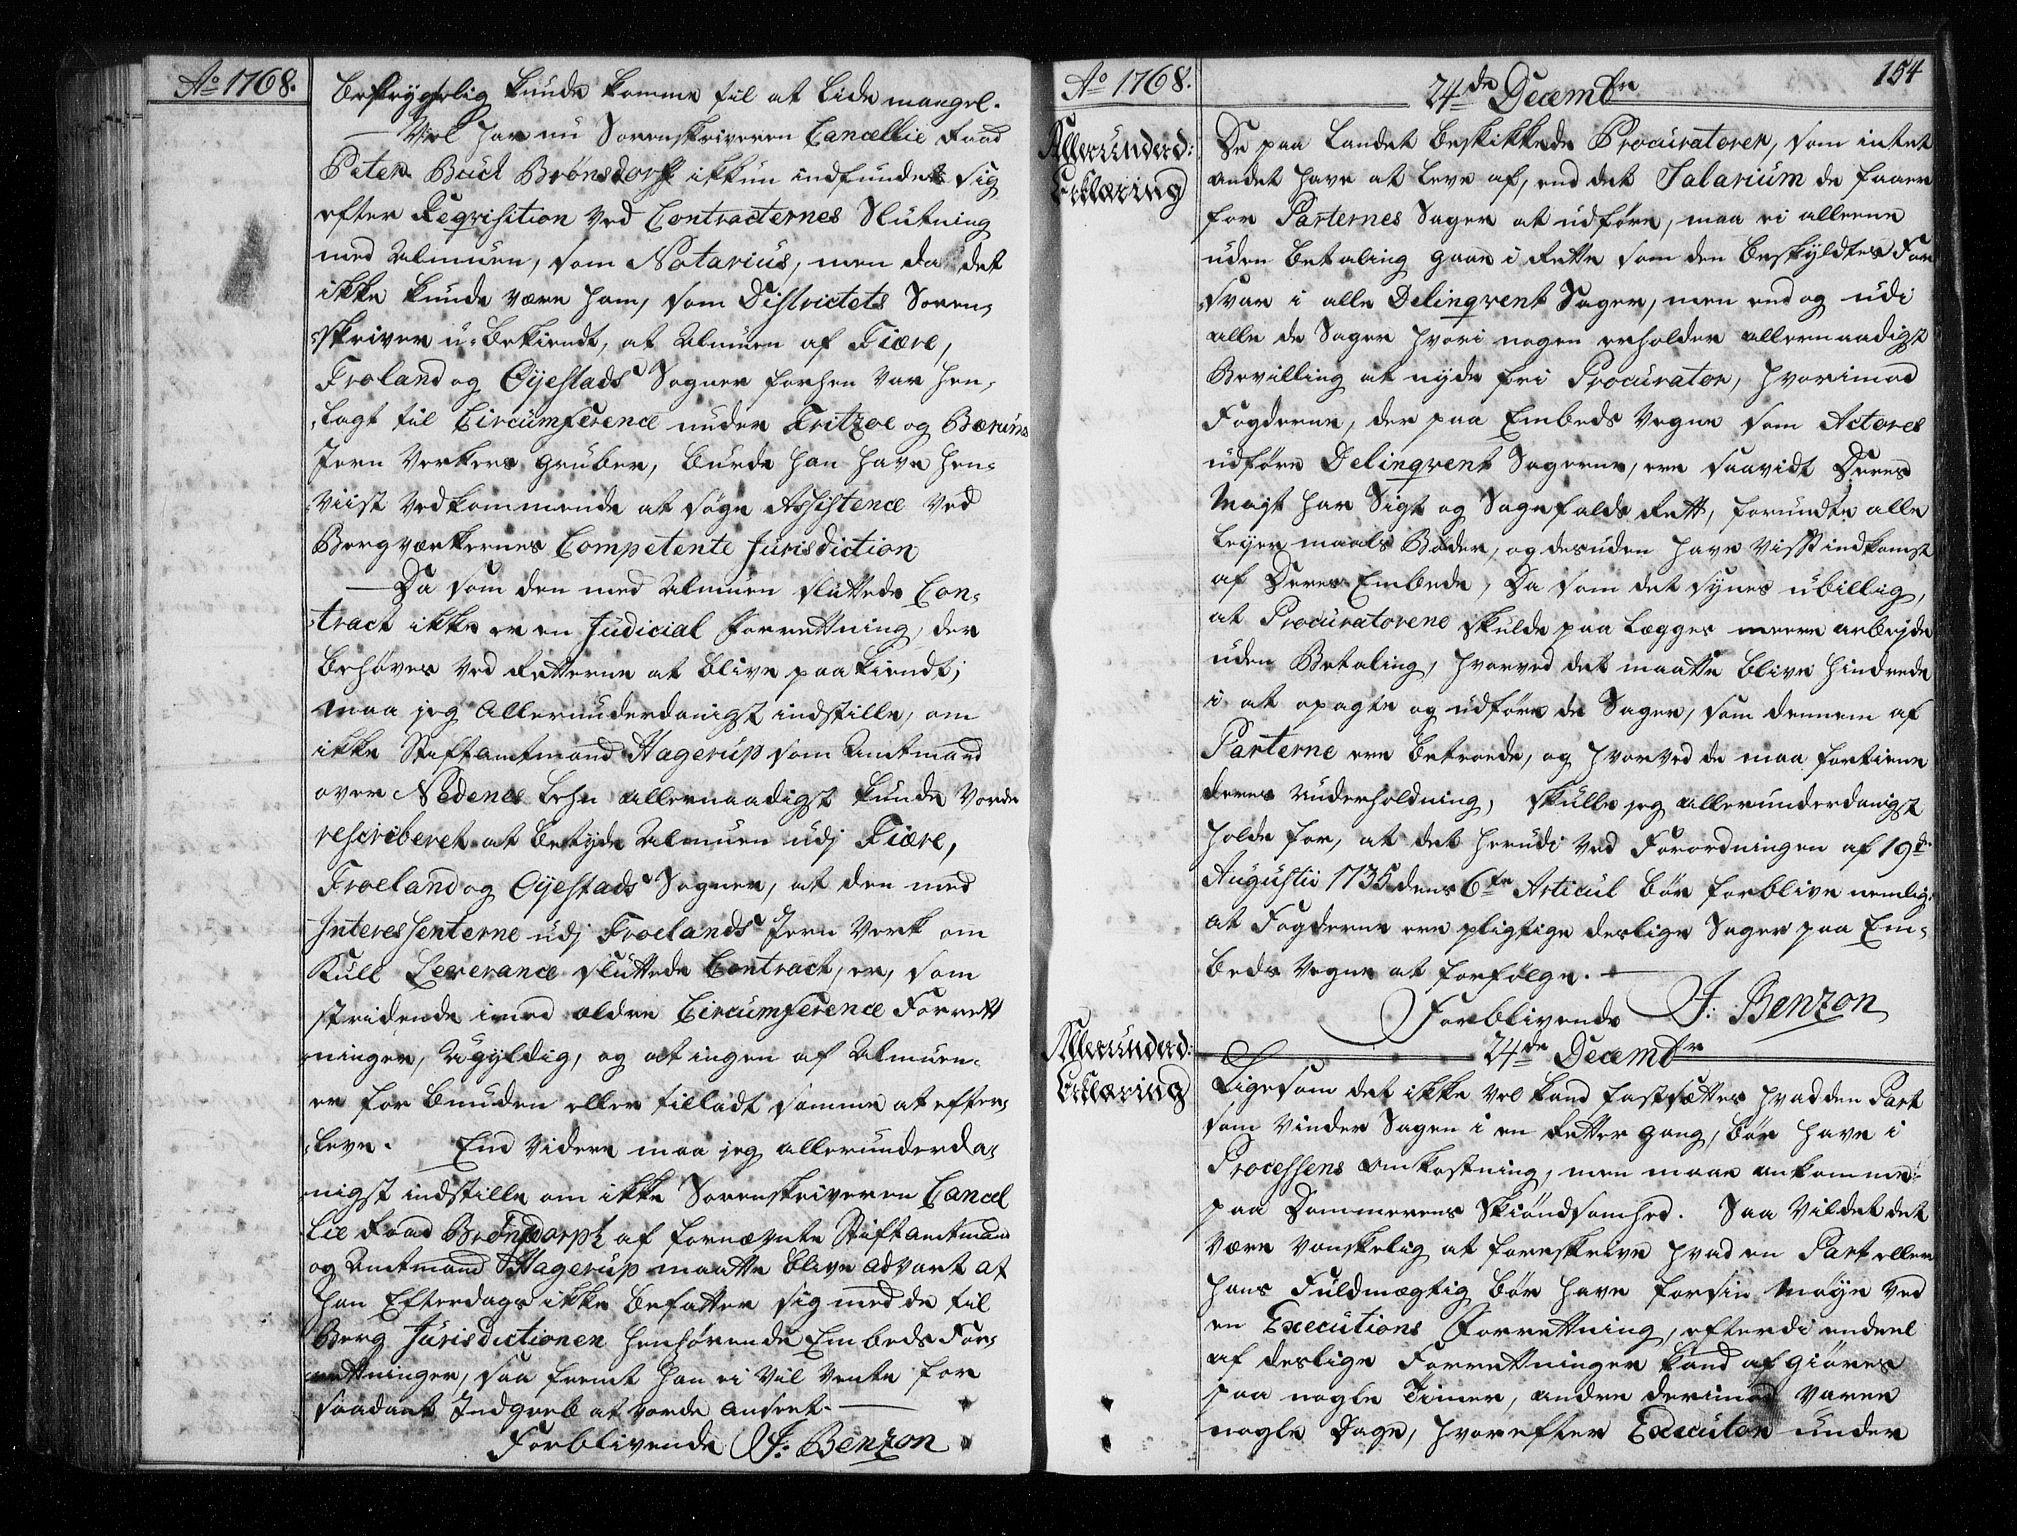 Ao 1768.
befrygtelig kunde komme til at lide mangel.
Vel har nu Sorenskriveren Cancellie Raad
Peter Bud Brønsdorph ikkun indfundet sig
efter Reqvisition ved Contracternes Slutning
med Almuen, som Notarius, men da det
ikke kunde være ham, som Districtets Soren-
skriver u-bekiendt, at Almuen af Fiære,
Froland og Øyestads Sogner forhen var hen-
lagt til Circumference under Fritzoe og Bærums
Jern Verkers Gruber, burde han have hen-
viist vedkommende at søge Assistence ved
Bergværkernes Competente Jurisdiction
Da som den med Almuen sluttede Con-
tract ikke er en Judicial forrettning, der
behøves ved Retterne at blive paakiendt;
maa jeg allerunderdanigst indstille, om
ikke Stiftamtmand Hagerup som Amtmand
over Nedenes Lehn allernaadigst kunde vorde
rescriberet at betyde Almuen udj Fiære,
Froeland og Øyestads Sogner, at den med
Interessenterne udj Froelands Jern Verk om
Kull Leverance sluttede Contract, er, som
stridende imod ældre Circumference Forrett
ninger, Ugyldig, og at ingen af Almuen
er for bunden eller tilladt samme at efter-
leve. End videre maa jeg allerunderda-
nigst indstille om ikke Sorenskriveren Cancel
lie Raad Brønsdorph af fornævnte Stiftamtmand
og Amtmand Hagerup maatte blive advaret at
han Efterdags ikke befatter sig med de til
Berg Jurisdictionen henhørende Embeds For-
rettninger, saa fremt han ei vil vente for
saadant Indgreb at vorde anseet.
Forblivende J: Benzon
Ao 1768.
154
24de Decembre
Allerunderd:
Erklæring
De paa Landet beskikkede Procuratorer, som intet
andet have at leve af, end det Salarium de faaer
for Parternes Sager at udføre, maa ei alleene
uden betaling gaae i Rette som den beskyldtes For
svar i alle Delinqvent Sager, men endog udi
alle de Sager hvori nogen erholder allernaadigst
Bevilling at nyde fri Procurator, hvorimod
Fogderne, der paa Embeds Vegne som Actores
udføre Delinqvent Sagerne, ere saavidt Deres
Magt har Sigt og Sagefalds Rett, forundte alle
Leyermaals Bøder, og desuden have Visst indkomst
af Deres Embede, Da som det synes ubillig,
at Procuratorene skulde paa lægges meere arbejde
uden Betaling, hvorved det maatte blive hindrede
i at opagte og udføre de Sager, som dennem af
Parterne ere betroede, og hvorved de maa fortiene
deres Underholdning, skulle jeg allerunderdanigst
holde for, at det herudi ved Forordningen af 19de
Augustii 1735 dens 6te Articul bør forblive nemlig:
at Fogderne ere pligtige deslige Sager paa Em-
beds Vegne at forfølge.
Forblivende J: Benzon
24de Decembr
Allerunderd:
Erklæring
Ligesom det ikke vel kand fastsættes hvad den Part
som vinder Sagen i en Retter gang, bør have i
Processens omkostning, men maae ankomme
paa Dommerens Skiøndsomhed. Saa vil det det
være vanskelig at foreskrive hvad en Part eller
hans Fuldmægtig bør have for sin Møye ved
en Executions Forrettning, efterdi endeel
af deslige Forrettninger kand afgiøres
paa nogle Timer, andre derimod varer
nogle Dage, hvorefter Executor under